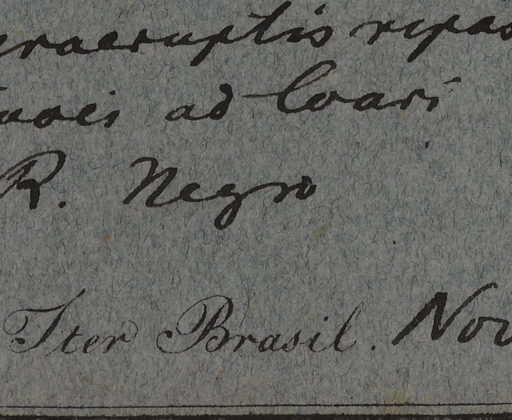 praeruptis ripas
ad Coari
R. Negro
Iter Brasil. Nov